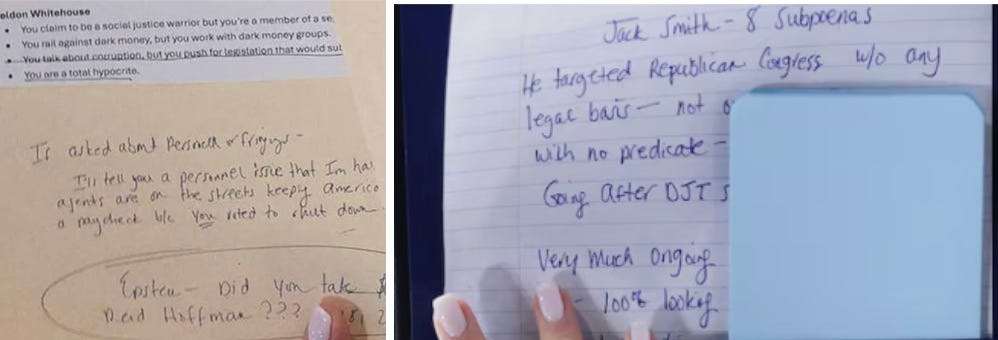 eldon Whitehouse
• You claim to be a social justice warrior but you're a member of a se
• You rail against dark money, but you work with dark money groups.
• You talk about corruption, but you push for legislation that would sul
• You are a total hypocrite.
If asked about Personell or firings -
I'll tell you a personnel issue that Im ha
agents are on the streets keeping America
a paycheck b/c you voted to shut down
Epstein - Did you take $
Reid Hoffman ???
Jack Smith - 8 Subpoenas
He targeted Republican Congress w/o any
legal basis - not
with no predicate -
Going After DJT s
Very Much Ongoing
- 100% looking